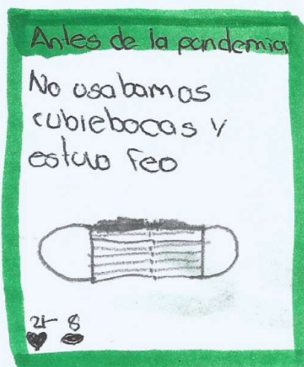 Antes de la pandemia
No usabamos
cubiebocas y
estuvo feo
21 8